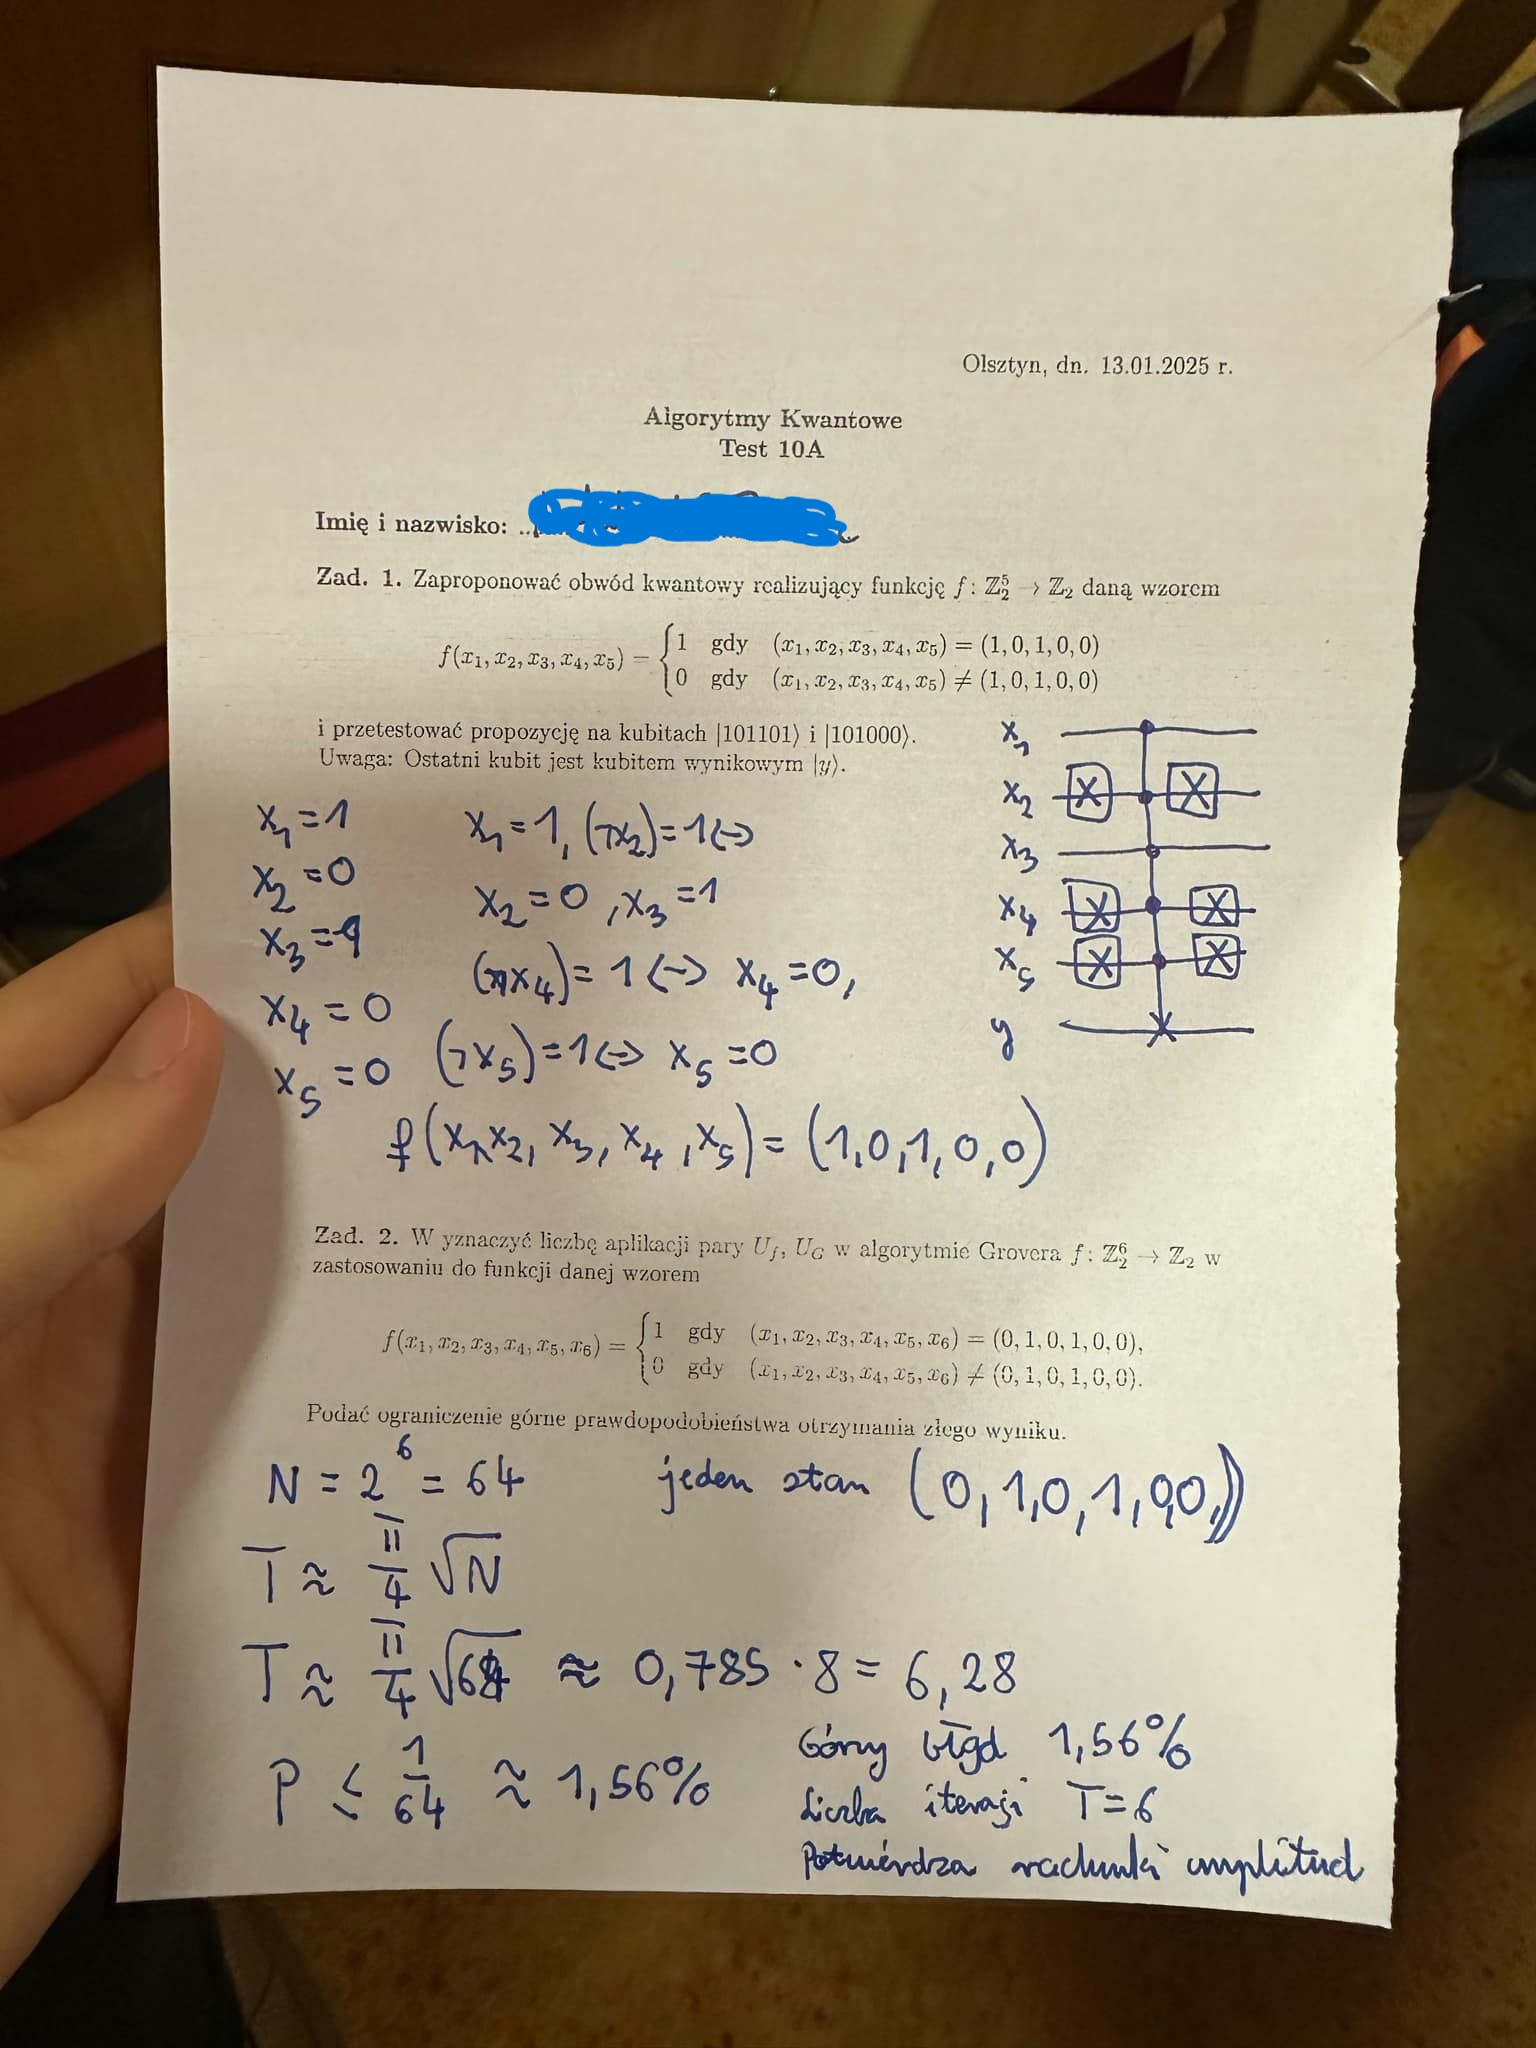 Olsztyn, dn. 13.01.2025 r.
Algorytmy Kwantowe
Test 10A
Imię i nazwisko:
Zad. 1. Zaproponować obwód kwantowy realizujący funkcję f: ℤ₂⁵ → ℤ₂ daną wzorem
f(x₁, x₂, x₃, x₄, x₅) = { 1 gdy (x₁, x₂, x₃, x₄, x₅) = (1, 0, 1, 0, 0)
0 gdy (x₁, x₂, x₃, x₄, x₅) ≠ (1, 0, 1, 0, 0)
i przetestować propozycję na kubitach |101101⟩ i |101000⟩.
Uwaga: Ostatni kubit jest kubitem wynikowym |y⟩.
x₁
x₂ X X
x₃
x₄ X X
x₅ X X
y
x₁ = 1
x₂ = 0
x₃ = 1
x₄ = 0
x₅ = 0
x₁ = 1, (¬x₂) = 1 ↔
x₂ = 0, x₃ = 1
(¬x₄) = 1 ↔ x₄ = 0,
(¬x₅) = 1 ↔ x₅ = 0
f(x₁, x₂, x₃, x₄, x₅) = (1,0,1,0,0)
Zad. 2. W yznaczyć liczbę aplikacji pary U_f, U_G w algorytmie Grovera f: ℤ₂⁶ → ℤ₂ w
zastosowaniu do funkcji danej wzorem
f(x₁, x₂, x₃, x₄, x₅, x₆) = { 1 gdy (x₁, x₂, x₃, x₄, x₅, x₆) = (0, 1, 0, 1, 0, 0),
0 gdy (x₁, x₂, x₃, x₄, x₅, x₆) ≠ (0, 1, 0, 1, 0, 0).
Podać ograniczenie górne prawdopodobieństwa otrzymania złego wyniku.
N = 2⁶ = 64 jeden stan (0,1,0,1,0,0,)
T ≈ π/4 √N
T ≈ π/4 √64 ≈ 0,785 · 8 = 6,28
P ≤ 1/64 ≈ 1,56%
Górny błąd 1,56%
Liczba iteracji T = 6
Potwierdza rachunki amplitud